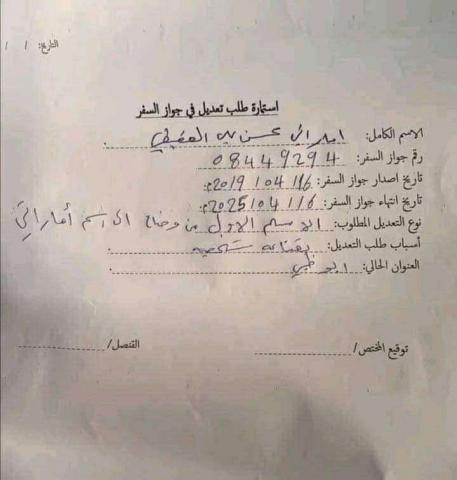 التاريخ: / /
استمارة طلب تعديل في جواز السفر
الاسم الكامل: اماراتي
رقم جواز السفر: 08449294
تاريخ اصدار جواز السفر: 2019/04/16م
تاريخ انتهاء جواز السفر: 2025/04/16م
نوع التعديل المطلوب: الاسم الاول من وضاح الى اسم أماراتي
أسباب طلب التعديل: بقناعه شخصيه
العنوان الحالي: ابوظبي
توقيع المختص/ القنصل/